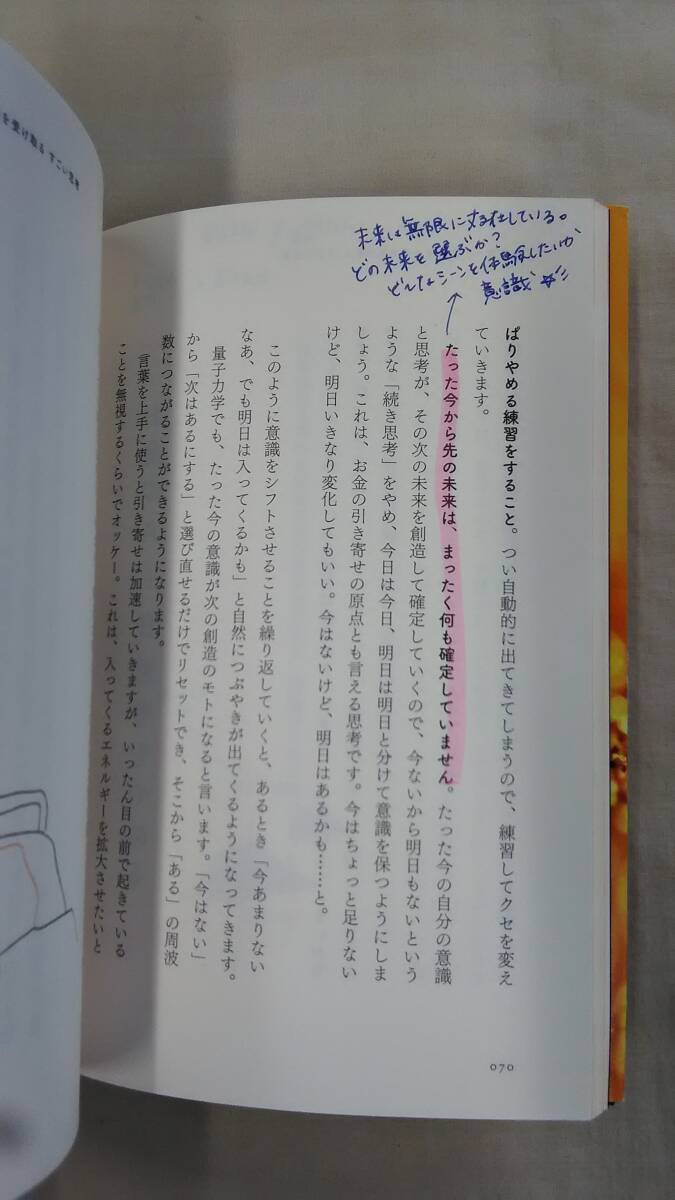 を受け取る すごい思考
未来は無限に存在している。
どの未来を選ぶか?
どんなシーンを体験したいか
意識
ぱりやめる練習をすること。つい自動的に出てきてしまうので、練習してクセを変え
ていきます。
たった今から先の未来は、まったく何も確定していません。たった今の自分の意識
と思考が、その次の未来を創造して確定していくので、今ないから明日もないという
ような「続き思考」をやめ、今日は今日、明日は明日と分けて意識を保つようにしま
しょう。これは、お金の引き寄せの原点とも言える思考です。今はちょっと足りない
けど、明日いきなり変化してもいい。今はないけど、明日はあるかも……と。
このように意識をシフトさせることを繰り返していくと、あるとき「今あまりない
なあ、でも明日は入ってくるかも」と自然につぶやきが出てくるようになってきます。
量子力学でも、たった今の意識が次の創造のモトになると言います。「今はない」
から「次はあるにする」と選び直せるだけでリセットでき、そこから「ある」の周波
数につながることができるようになります。
言葉を上手に使うと引き寄せは加速していきますが、いったん目の前で起きている
ことを無視するくらいでオッケー。これは、入ってくるエネルギーを拡大させたいと
070